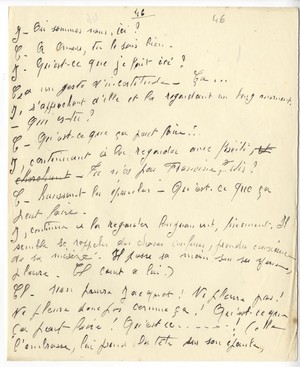 46
46
J - Où sommes nous, ici ?
C - A Omaru, tu le sais bien.
J - Qu'est-ce que je fais ici ?
C a un geste d'incertitude - Ça...
J, s'approchant d'elle et la regardant un long moment
- Qui es-tu ?
C - Qu'est-ce que ça peut faire ?
J, continuant à la regarder avec
- Tu n'es pas Francine, dis ?
C - haussant les épaules - Qu'est-ce que ça
peut faire.
J, continue à la regarder longuement, fixement. Il
semble se rappeler des choses, prendre conscience
de sa misère. Il passe sa main sur ses yeux,
pleure. (Il court à lui.)
C - Mon pauvre Jacquot ! Ne pleure pas !
Ne pleure donc pas comme ça ! Qu'est-ce que
ça peut faire ! Qu'est-ce ......! (elle
l'embrasse, lui prend la tête sur son épaule,